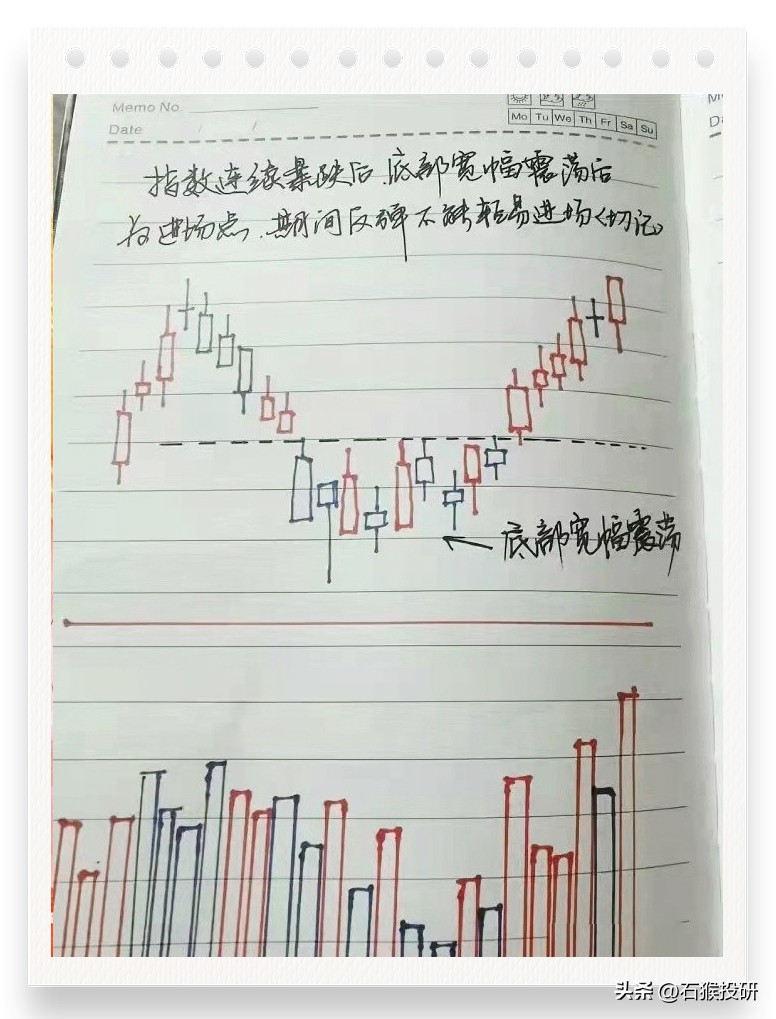 Memo No.
Date / /
Mo Tu We Th Fr Sa Su
指数连续暴跌后.底部宽幅震荡后
为进场点.期间反弹不能轻易进场<切记>
底部宽幅震荡
头条 @石猴投研